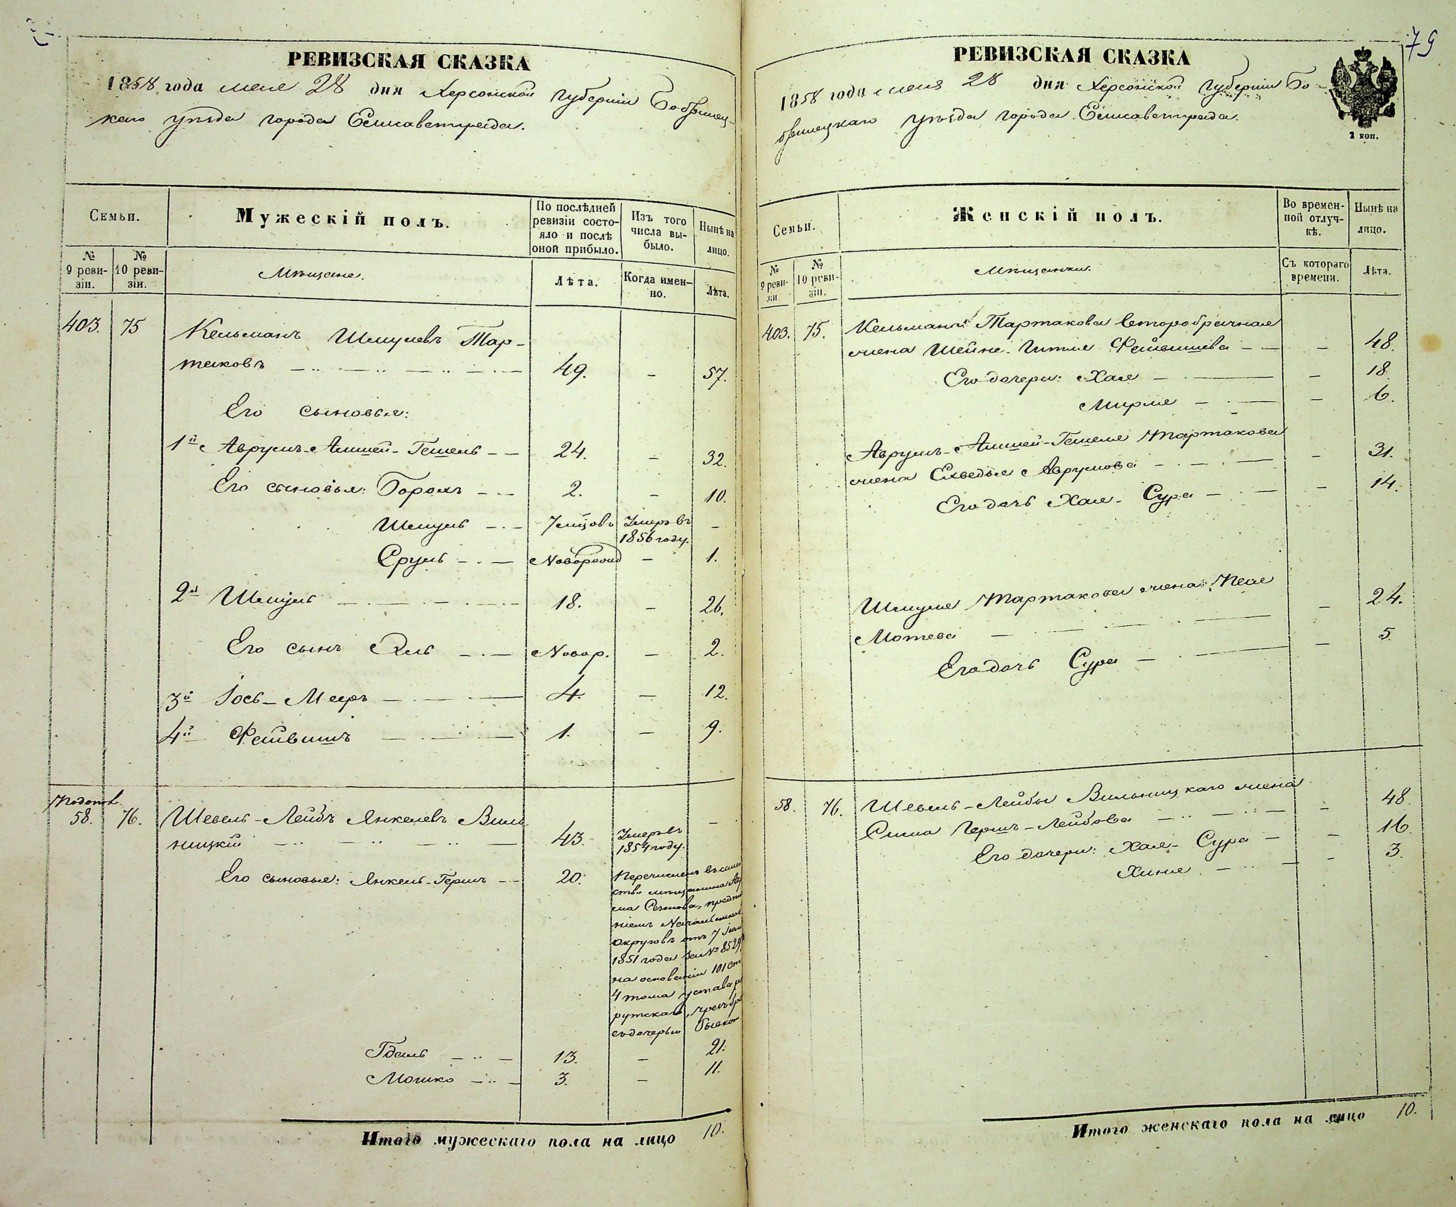 79
РЕВИЗСКАЯ СКАЗКА
1858 года мая 28 дня Херсонской Губерніи Бобринец-
каго уѣзда города Елисаветграда.
Семьи.
Мужескій полъ.
По послѣдней ревизіи состо-
яло и послѣ оной прибыло.
Изъ того числа вы-
было.
Нынѣ на лицо.
№ 9 реви-
зіи.
№ 10 реви-
зіи.
Мѣщане.
Лѣта.
Когда имен-
но.
Лѣта.
403. 75 Кельманъ Шмулевъ Тар-
таковъ 49. — 57.
Его сыновья:
1й Аврумъ-Аншей-Гешель 24. — 32.
Его сыновья: Борохъ 2. — 10.
Шмуль 7 мѣсов. Умеръ въ 1856 году. —
Сруль Новорожд — 1.
2й Шмуль 18. — 26.
Его сынъ Новор. — 2.
3й Іось-Меиръ 4. — 12.
4й Фейвишъ 1. — 9.
58. 76. Шевель-Лейбъ Янкелевъ Виль
ницкій 43. Умеръ въ 1854 году. —
Его сыновья: Янкель-Гершъ 20.
Перечисленъ въ семей
ство мѣщанина
округовъ отъ 7
1851 года за № 8529
на основаніи 101 ст
4 тома устава
рутскаго,
съ дочерью
Гдаль 13. — 21.
Мошко 3. — 11.
Итого мужескаго пола на лицо 10.
РЕВИЗСКАЯ СКАЗКА
1858 года мая 28 дня Херсонской Губерніи Бо-
бринецкаго уѣзда города Елисаветграда.
2 коп.
Семьи.
Женскій полъ.
Во времен-
ной отлуч-
кѣ.
Нынѣ на лицо.
№ 9 реви-
зіи.
№ 10 реви-
зіи.
Мѣщанки.
Съ котораго времени.
Лѣта.
403. 75. Кельмана Тартакова второбрачная
жена Шейне-Гитля Фейвишева — 48.
Его дочери: Хая — 18
Мирля — 6.
Аврумъ-Аншей-Гешеля Тартакова
жена Аврумова — 31.
Его дочь Хая-Сура — 14.
Шмуля Тартакова жена: Песя
Мотева — 24.
Его дочь Сура — 5.
58. 76. Шевель-Лейбы Вильницкаго жена
Гершъ-Лейбова — 48.
Его дочери: Хая-Сура — 16
— 3.
Итого женскаго пола на лицо 10.